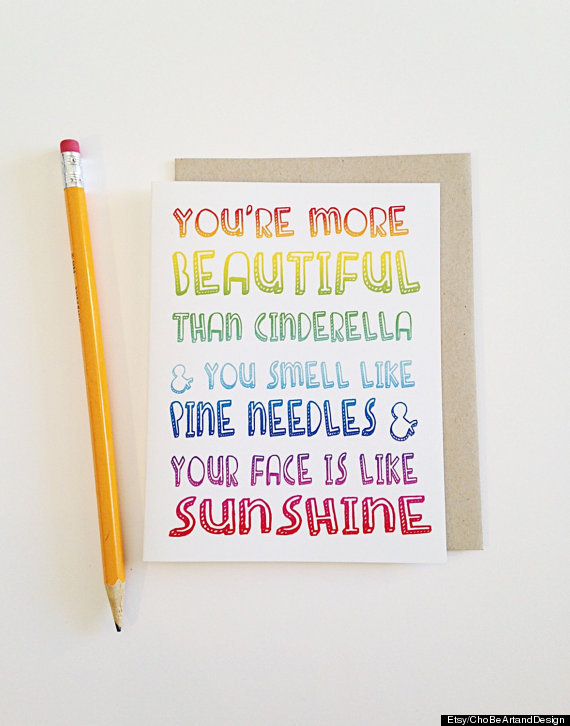 YOU'RE MORE
BEAUTIFUL
THAN CINDERELLA
& YOU SMELL LIKE
PINE NEEDLES &
YOUR FACE IS LIKE
SUNSHINE
Etsy/ChoBeArtandDesign